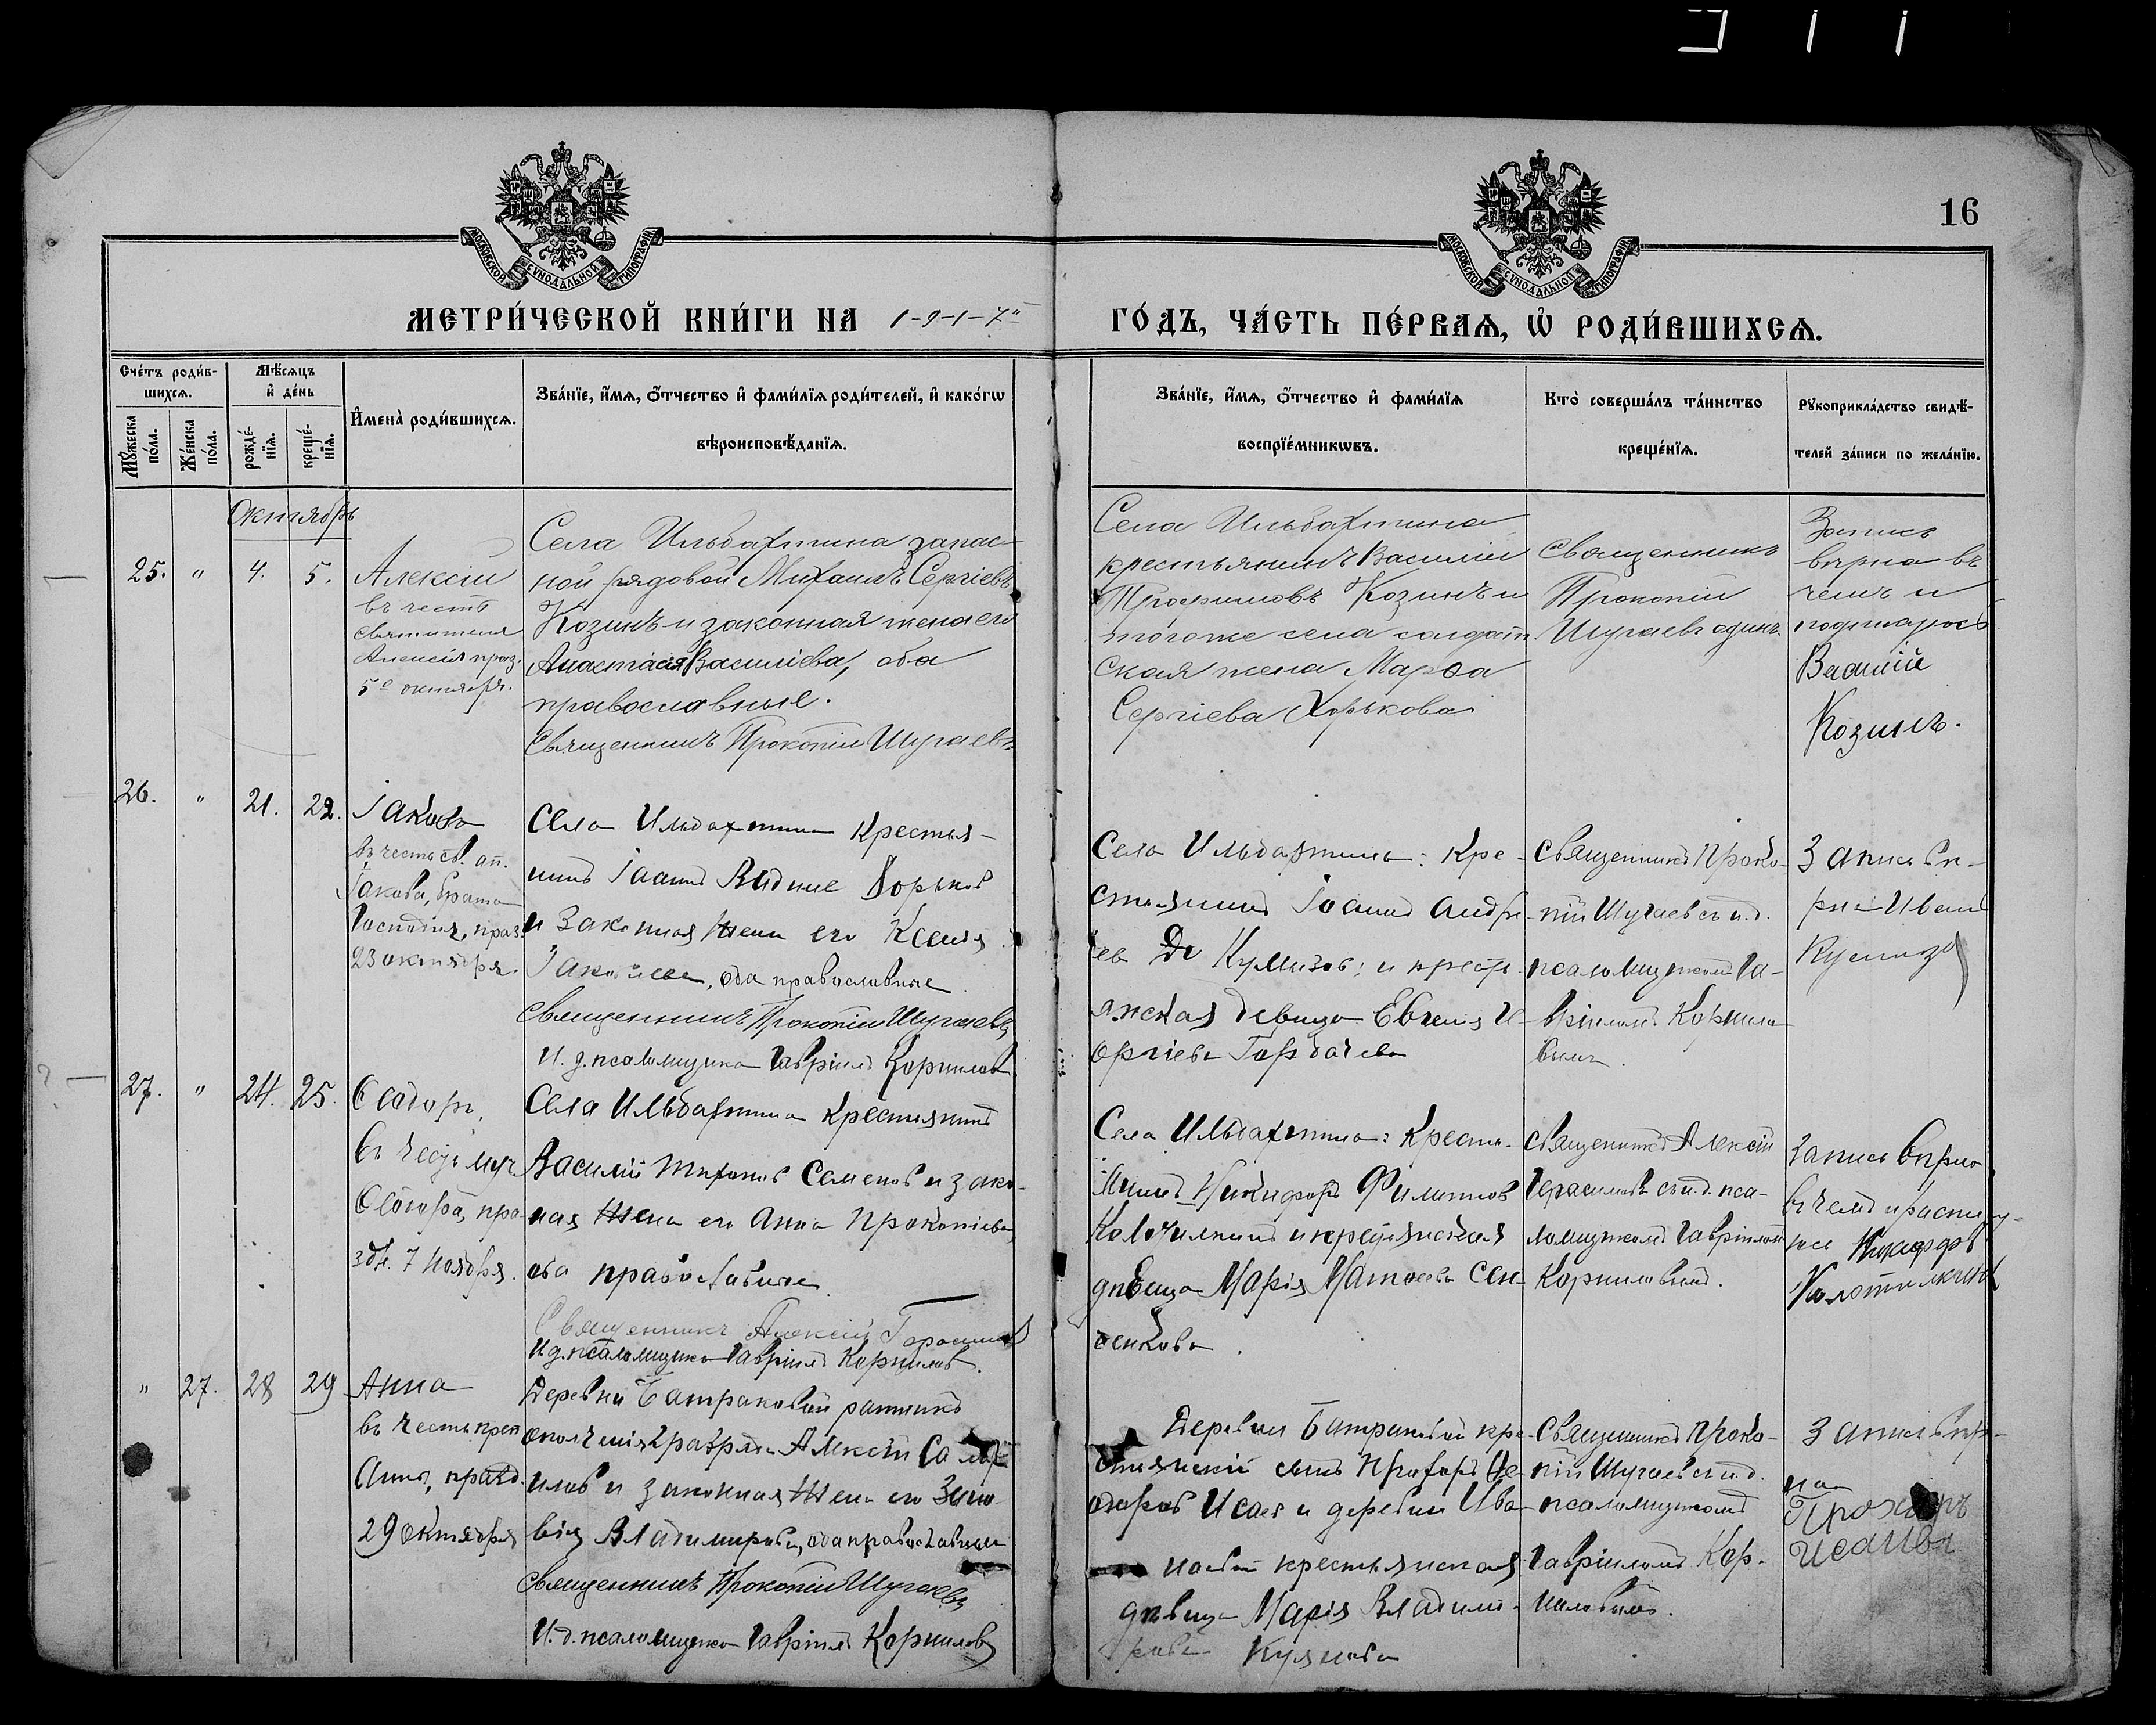 16
МОСКОВСКОЙ СѴНОДАЛЬНОЙ ТИПОГРАФІИ
МОСКОВСКОЙ СѴНОДАЛЬНОЙ ТИПОГРАФІИ
МЕТРИ́ЧЕСКОЙ КНИ́ГИ НА 1-9-1-7
ГО́ДЪ, ЧА́СТЬ ПЕ́РВАѦ, Ѡ РОДИ́ВШИХСѦ.
Сче́тъ роди́в-
шихсѧ.
Мѣ́сѧцъ
и де́нь
Мꙋ́жеска
по́ла.
Же́нска
по́ла.
рожде́-
нїѧ.
креще́-
нїѧ.
И҆мена̀ роди́вшихсѧ.
Зва́нїе, и҆́мѧ, ѻ҆́тчество и҆ фами́лїѧ роди́телей, и҆ како́гѡ
вѣроисповѣ́данїѧ.
Зва́нїе, и҆́мѧ, ѻ҆́тчество и҆ фами́лїѧ
воспрїе́мникѡвъ.
Кто̀ соверша́лъ та́инство
креще́нїѧ.
Рꙋкоприкла́дство свидѣ́-
телей за́писи по жела́нїю.
Октябрь
25. " 4. 5.
Алексій
въ честь
святителя
Алексія праз.
5го октябр.
Села Ильбахтина запас-
ной рядовой Михаилъ Сергіевъ
Козинъ и законная жена его
Анастасія Васильева, оба
православные.
Священникъ Прокопій Шугаевъ
Села Ильбахтина
крестьянинъ Василій
Трофимовъ Козинъ и
тогоже села солдат-
ская жена Марѳа
Сергіева Хорькова
Священникъ
Прокопій
Шугаевъ одинъ.
Запись
вѣрна въ
чемъ и
подпишусь
Василій
Козинъ.
26. " 21. 22.
Іаковъ
въ честь св. ап.
Іакова, брата
Господня, праз.
23 октября.
Села Ильбахтина Крестья-
нинъ Іоаннъ Хорьков
и Законная Жена его Ксенія
Іаковлева, оба православные
Священникъ Прокопій Шугаевъ
И. д. псаломщика Гавріилъ Корнилов
Села Ильбахтина: Кре-
стьянинъ Іоаннъ Андре-
ев и крестья-
янская девица Евгенія Ге-
оргіева Горбачева
Священникъ Проко-
пій Шугаевъ съ и. д.
псаломщикомъ Га-
вріиломъ Корнило-
вымъ.
Запись вѣ-
рна Иванъ
27. " 24. 25.
Ѳеодоръ,
въ честь муч.
Ѳеодора, пра-
здн. 7 Ноября.
Села Ильбахтина Крестьянинъ
Василій Тихонов Семенов и зако-
ная Жена его Анна Прокопіева,
оба православные
Священникъ Алексій Герасимовъ
И.д. псаломщика Гавріилъ Корнилов.
Села Ильбахтина: Кресть-
янинъ Никифоръ Филиппов
Колотилкинъ и крестьянская
дѣвица Марія Матѳеева Сен-
денкова.
Священникъ Алексій
Герасимовъ съ и.д. пса-
ломщикомъ Гавріиломъ
Корниловымъ.
Запись вѣрна
въ чемъ и распишу-
юсь Никифоръ
Колотилкинъ
" 27. 28 29
Анна
въ честь преп.
Анны, празд.
29 октября
Деревни Батраковой ратникъ
ополченія 2 разряда Алексій
и законная Жена его Зино-
вія Владимирова, оба православные
Священникъ Прокопій Шугаевъ
И.д. псаломщика Гавріилъ Корнилов
Деревни Батраковой кре-
стьянскій сынъ Прохоръ Ѳе-
одоров Исаев и деревни Ива-
новой крестьянская
дѣвица Марія Владими-
рова
Священникъ Проко-
пій Шугаевъ съ и.д.
псаломщикомъ
Гавріиломъ Кор-
ниловымъ.
Запись вѣр-
на
Прохоръ
Исаивъ